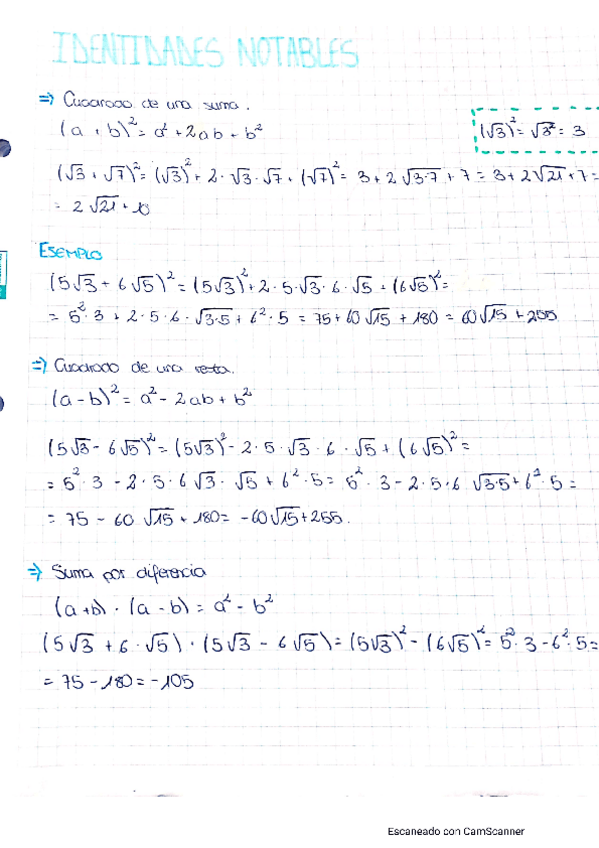 IDENTIDADES NOTABLES
⇒ Cuadrado de una suma.
(a + b)² = a² + 2ab + b²
(√3)² = √3² = 3
(√3 + √7)² = (√3)² + 2·√3·√7 + (√7)² = 3 + 2√3·7 + 7 = 3 + 2√21 + 7 =
= 2√21 + 10
ESEMPLO
(5√3 + 6√5)² = (5√3)² + 2·5·√3·6·√5 + (6√5)² =
= 5²·3 + 2·5·6·√3·5 + 6²·5 = 75 + 60√15 + 180 = 60√15 + 255
⇒ Cuadrado de una resta.
(a - b)² = a² - 2ab + b²
(5√3 - 6√5)² = (5√3)² - 2·5·√3·6·√5 + (6√5)² =
= 5²·3 - 2·5·6√3·√5 + 6²·5 = 5²·3 - 2·5·6√3·5 + 6²·5 =
= 75 - 60√15 + 180 = -60√15 + 255.
⇒ Suma por diferencia
(a + b)·(a - b) = a² - b²
(5√3 + 6·√5)·(5√3 - 6√5) = (5√3)² - (6√5)² = 5²·3 - 6²·5 =
= 75 - 180 = -105
Escaneado con CamScanner